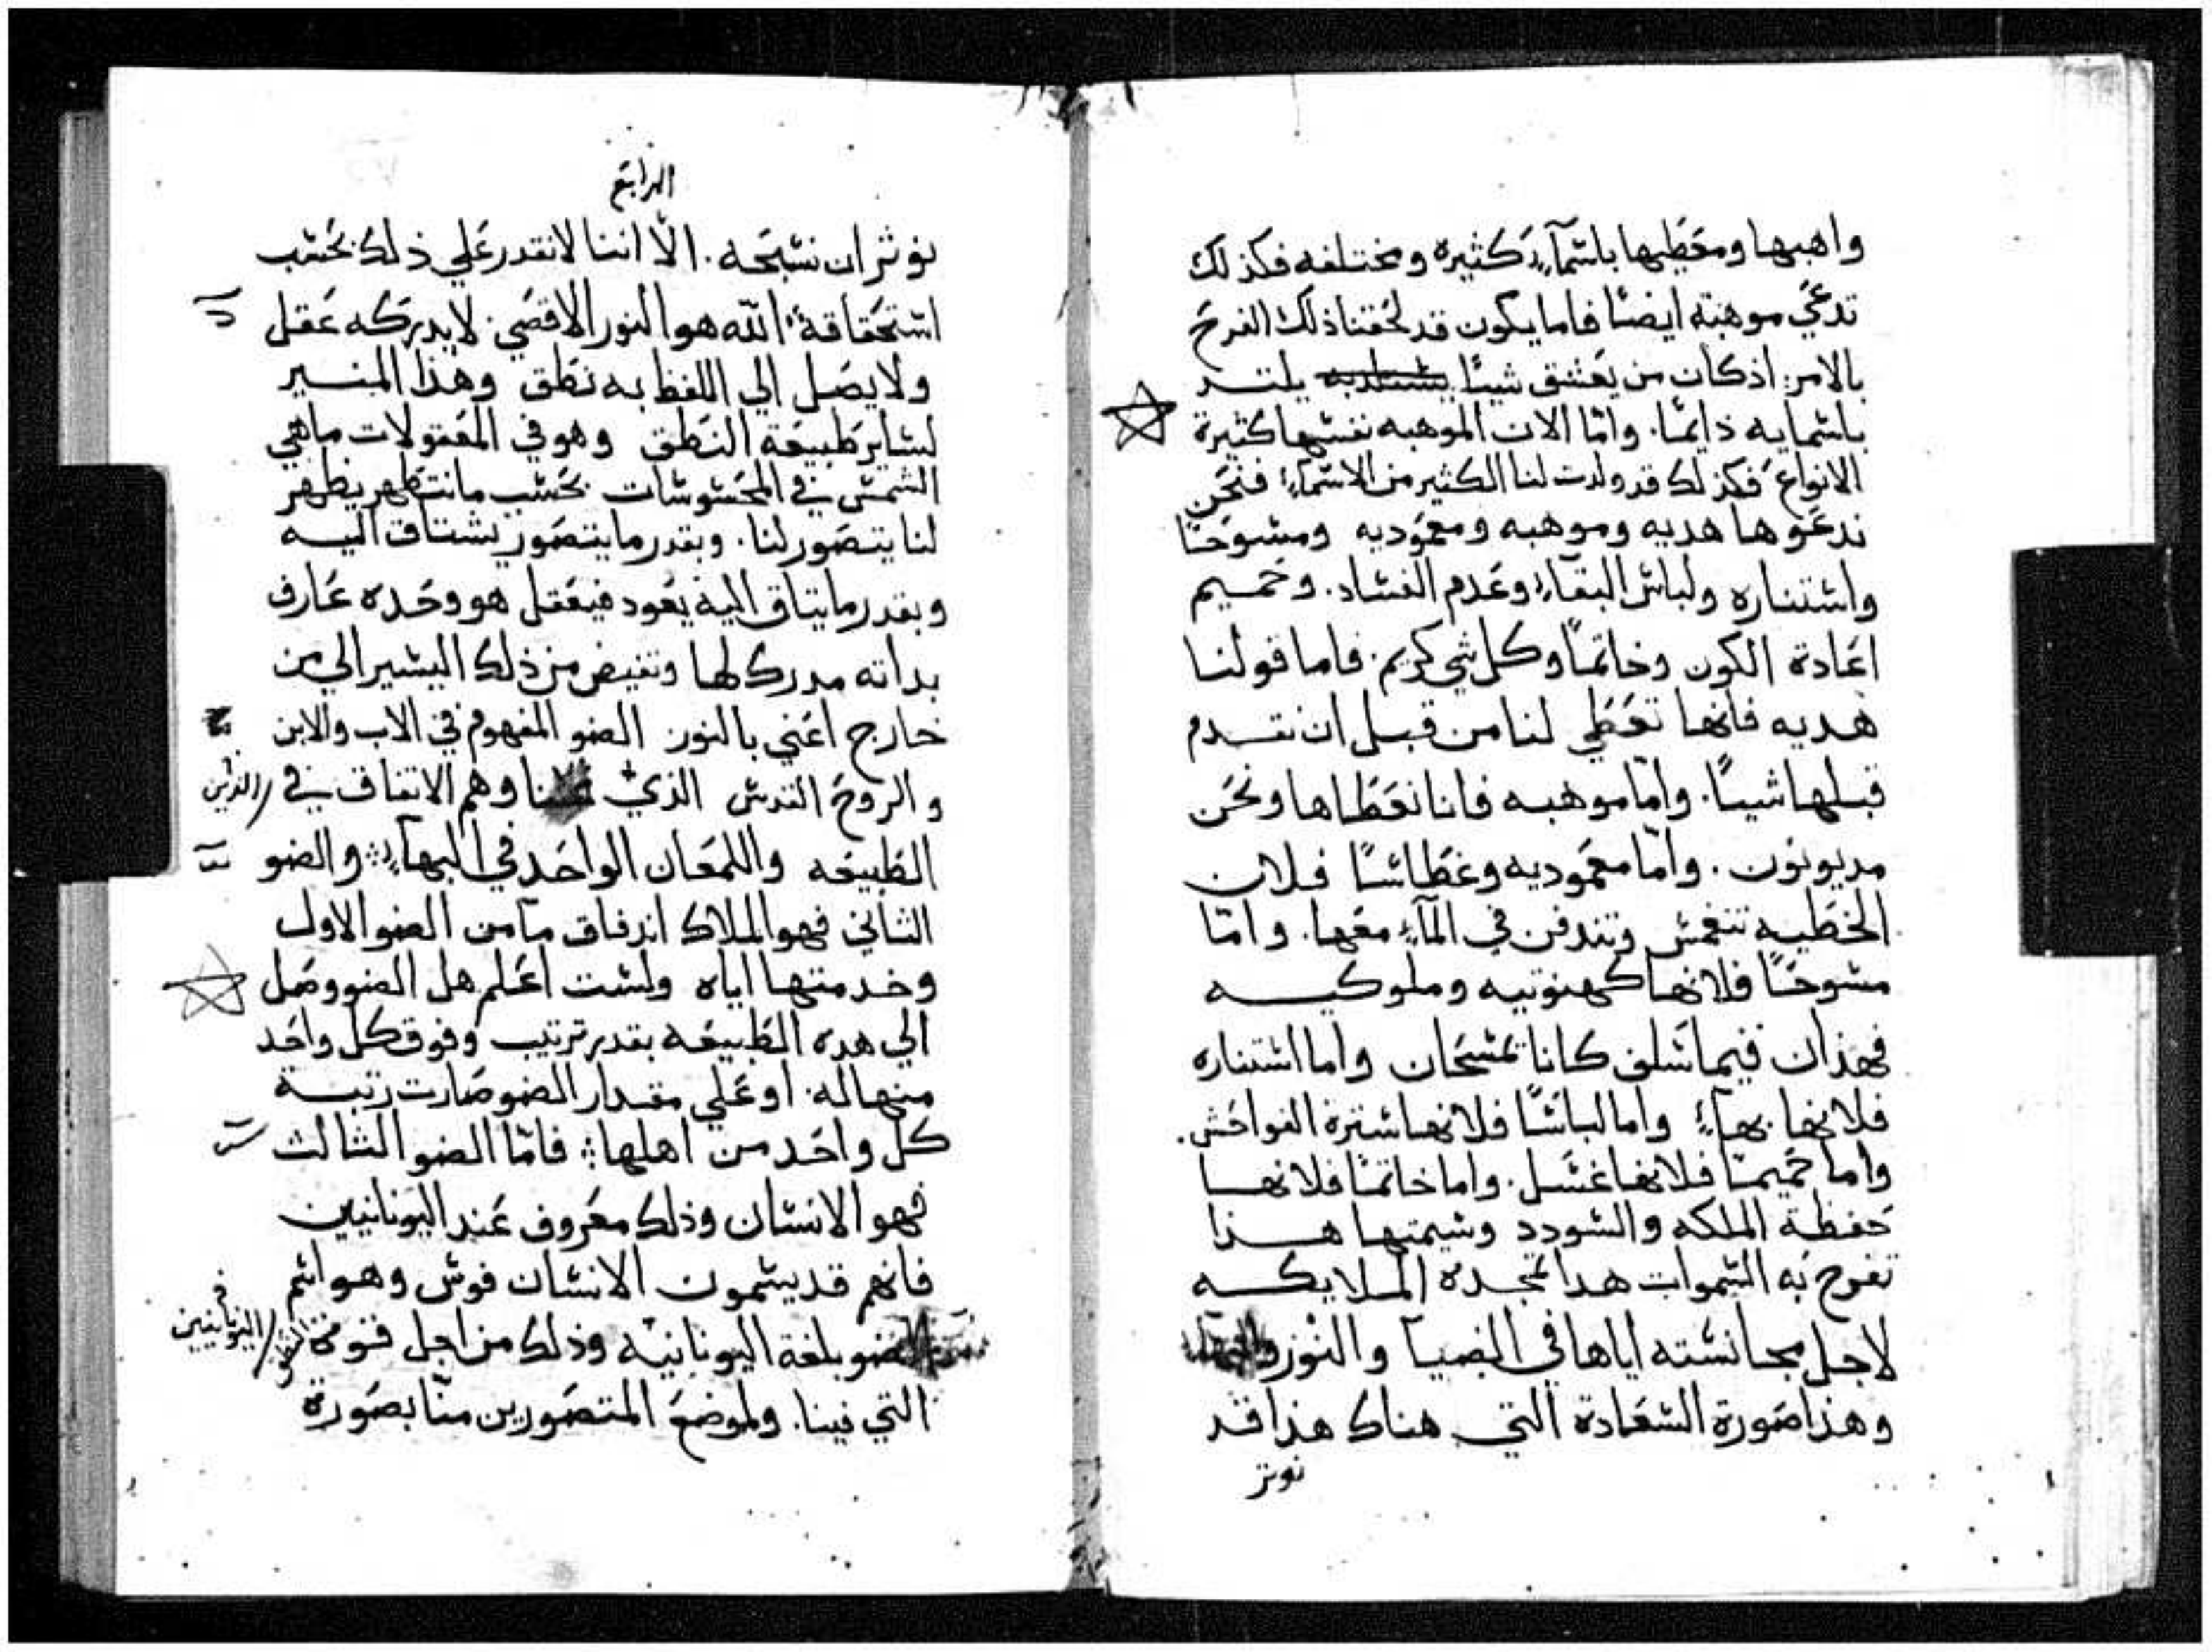 واهبها ومعطيها باسمآءٍ كثيره ومختلفه فكذلك
تدعي موهبته ايضًا فاما يكون قد لحقنا ذلك الفرح
بالامر: اذ كان من يعشق شيئًا يلتد
باسمايه دايمًا. وامّا الان الموهبه نفسها كثيرة
الانواع فكذلك قد ولدت لنا الكثير من الاسمآءِ فنحن
ندعوها هديه وموهبه ومعموديه ومسوحًا
واستناره ولباس البقاءِ وعدم الفساد. وحميم
اعادة الكون وخاتمًا وكل شي كريم. فاما قولنا
هديه فانها تعطي لنا من قبل ان نقدم
قبلها شيئًا. وامّا موهبه فانا نعطاها ونحن
مديونون. وامّا معموديه وغطاسًا فلان
الخطيه تنغمس وتندفن في المآءِ معها. وامّا
مسوحًا فلانها كهنوتيه وملوكيه
فهذان فيما سلف كانا يمسحان واما استناره
فلانها بهآءٍ واما لباسًا فلانها سترة الفواحش.
واما حميمًا فلانها غسل. واما خاتمًا فلانها
حفظة الملكه والسودد وسيمتها هذا
تفرح به السموات هدا تمجده الملايكه
لاجل مجانسته اياها في الضيا والنور
وهذا صورة السعادة التي هناك هذا قد
نوتر
الرابع
نوثر ان نسبحه. الّا اننا لا نقدر علي ذلك بحسب
استحقاقة الله هو النور الاقصي. لا يدركه عقل
ولا يصل الي اللفظ به نطق وهذا المنير
لساير طبيعة النطق وهو في المعقولات ماهي
الشمس في المحسوسات بحسب ما نتطهر يظهر
لنا يتصور لنا. وبقدر ما يتصور يشتاق اليه
وبقدر ما يتاق اليه يعود فيعقل هو وحده عارف
بداته مدرك لها وتفيض من ذلك اليسير الي من
خارج اعني بالنور الضو المفهوم في الاب والابن
والروح القدس الذي وهم الاتفاق في
الذين
الطبيعه واللمعان الواحد في البهآءِ والضو
الثاني فهو الملاك اندفاق ما من الضو الاول
وخدمتها اياه ولست اعلم هل الضو وصل
الي هده الطبيعه بقدر ترتيب وفوق كل واحد
منها له. او علي مقدار الضو صارت رتبة
كل واحد من اهلها فامّا الضو الثالث
فهو الانسان وذلك معروف عند اليونانيين
فانهم قد يسمون الانسان فوس وهو اسم
ضو بلغة اليونانيه وذلك من اجل قوة
اليونانيين
التي فينا. ولموضع المتصورين منّا بصورة